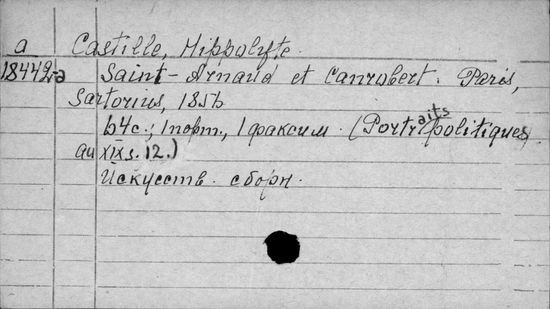 a
Castille, Hippolyte.
18442-a
Saint-Arnaud et Canrobert. Paris,
Sartorius, 1856
64с.; 1 порт., 1 факсим. (Portraits politiques
au XIXs. 12.)
Искусств. сборн.